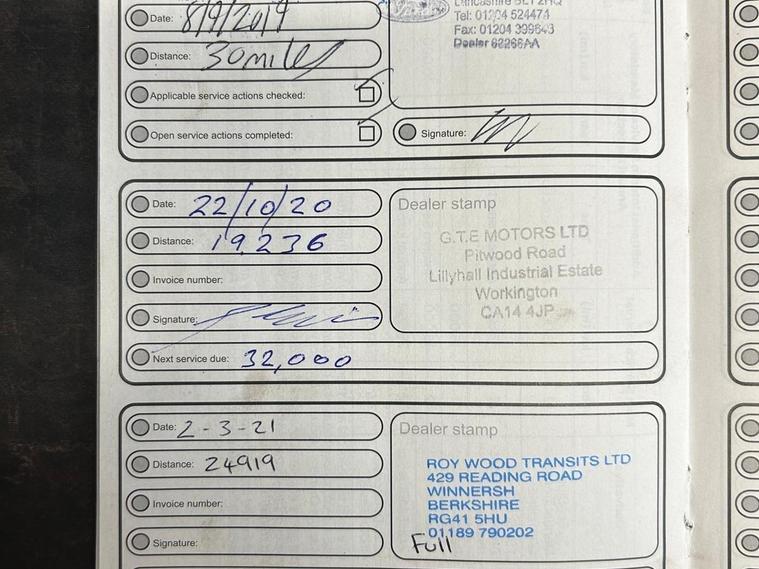 Date: 8/9/2019
Lancashire BL1 2HQ
Tel: 01204 524474
Fax: 01204 399643
Dealer 62266AA
Distance: 30miles
Applicable service actions checked:
Open service actions completed:
Signature:
Date: 22/10/20
Dealer stamp
Distance: 19,236
G.T.E MOTORS LTD
Pitwood Road
Lillyhall Industrial Estate
Workington
CA14 4JP
Invoice number:
Signature:
Next service due: 32,000
Date: 2-3-21
Dealer stamp
Distance: 24919
ROY WOOD TRANSITS LTD
429 READING ROAD
WINNERSH
BERKSHIRE
RG41 5HU
01189 790202
Full
Invoice number:
Signature: